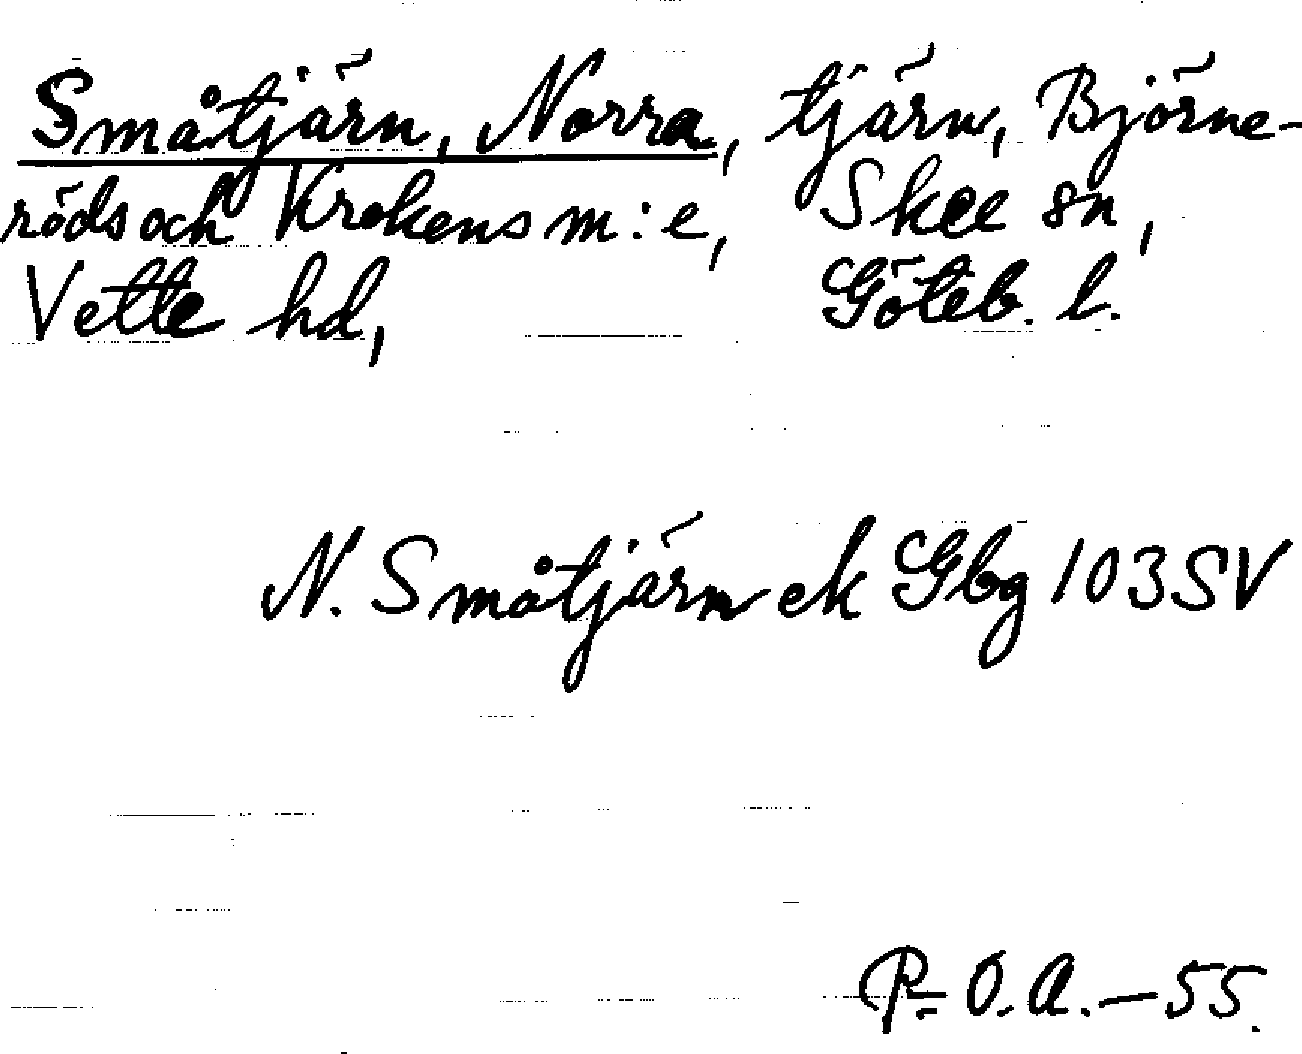 Småtjärn, Norra, tjärn, Björne-
röds och Krokens m:e, Skee sn,
Vette hd, Göteb. l.
N. Småtjärn ek Gbg 103 SV
P.-O.A.—55.